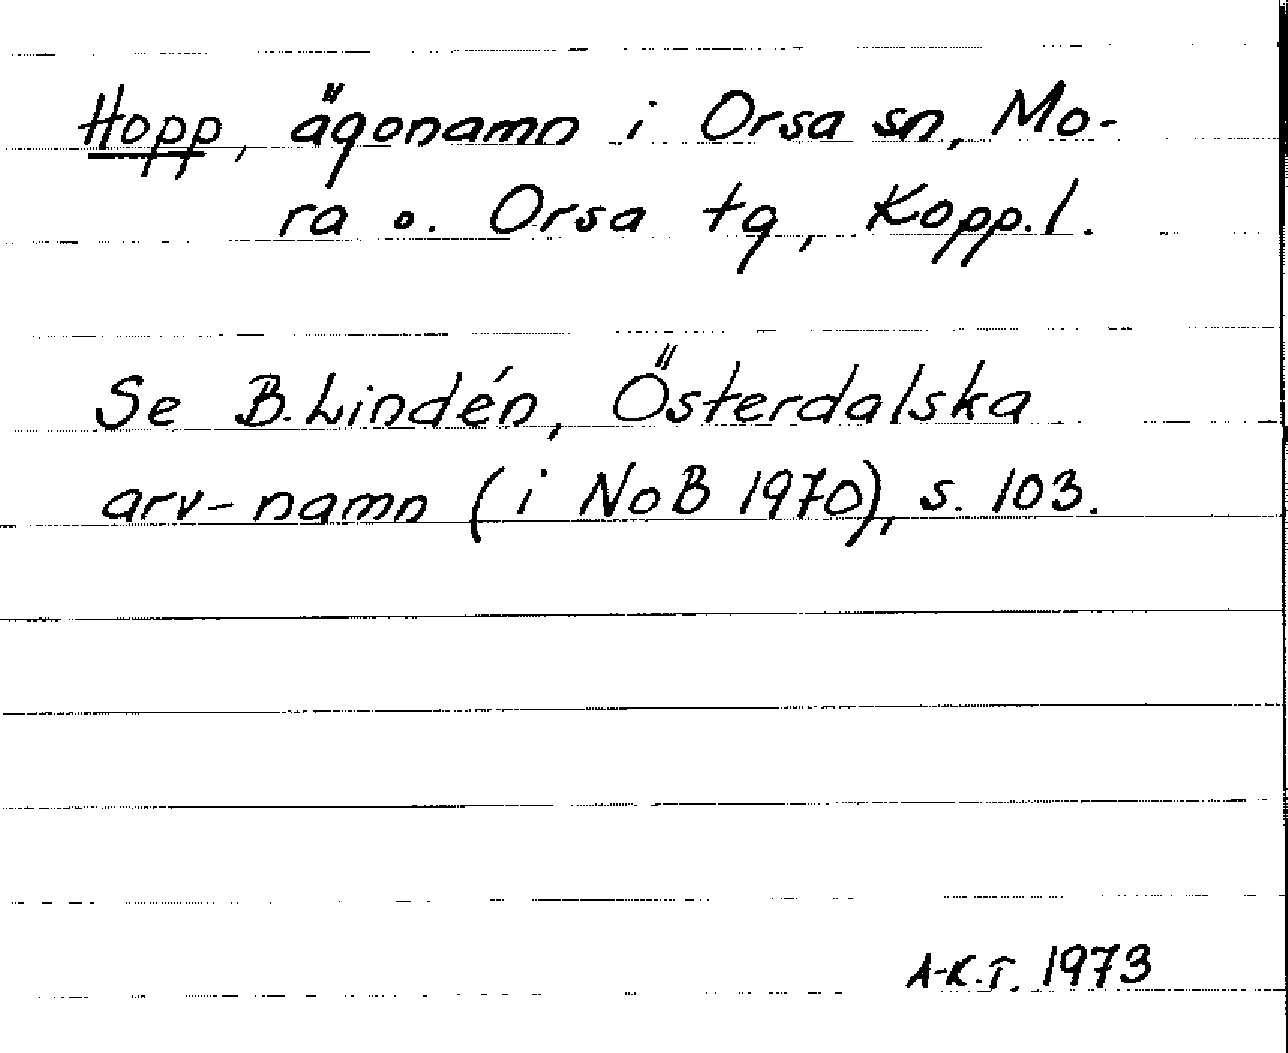 Hopp, ägonamn i Orsa sn, Mo-
ra o. Orsa tg, Kopp.l.
Se B. Lindén, Österdalska
arv-namn (i NoB 1970), s. 103.
A-K.T. 1973